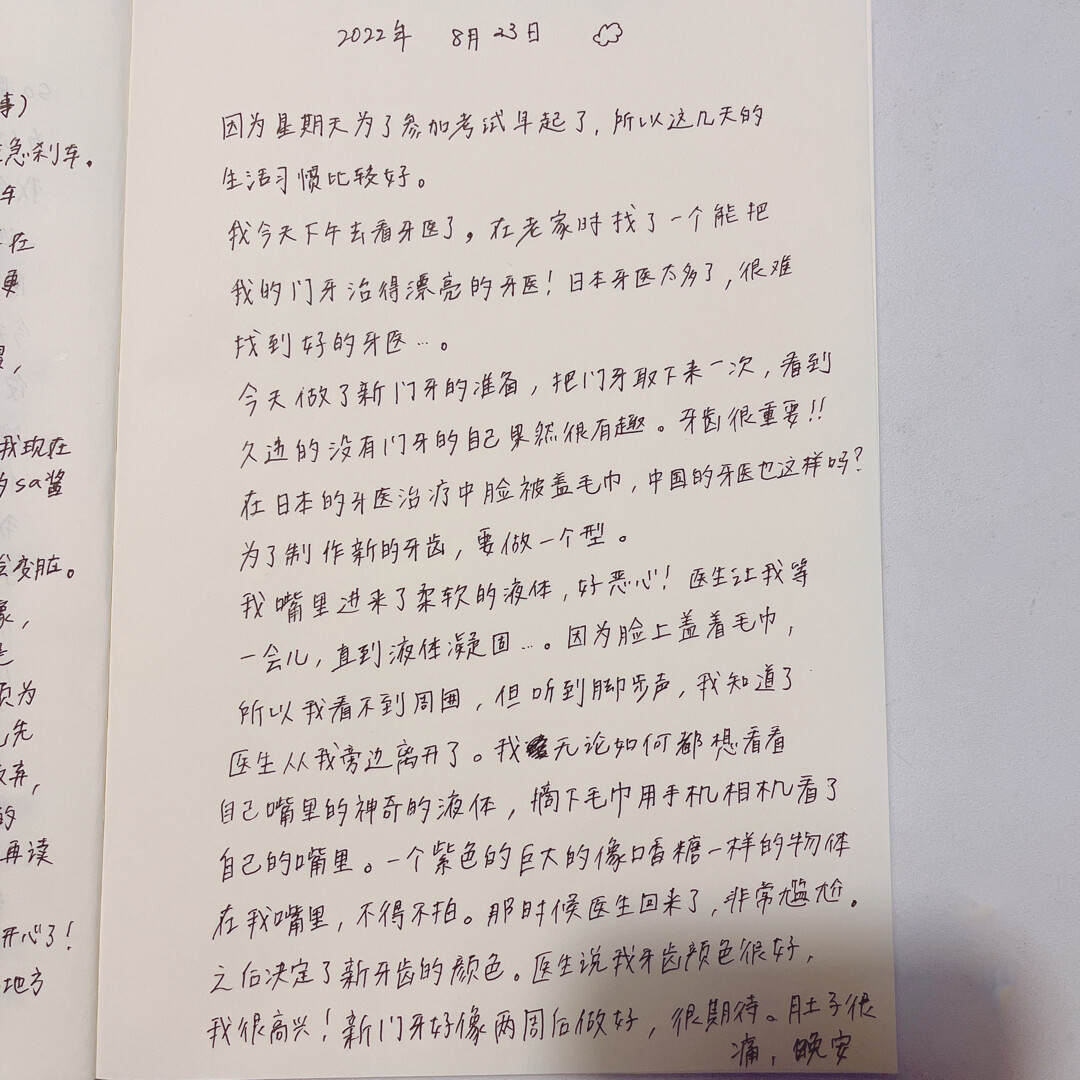 2022年 8月23日
因为星期天为了参加考试早起了,所以这几天的
生活习惯比较好。
我今天下午去看牙医了。在老家时找了一个能把
我的门牙治得漂亮的牙医!日本牙医太多了,很难
找到好的牙医…。
今天做了新门牙的准备,把门牙取下来一次,看到
久违的没有门牙的自己果然很有趣。牙齿很重要!!
在日本的牙医治疗中脸被盖毛巾,中国的牙医也这样吗?
为了制作新的牙齿,要做一个型。
我嘴里进来了柔软的液体,好恶心!医生让我等
一会儿,直到液体凝固…。因为脸上盖着毛巾,
所以我看不到周围,但听到脚步声,我知道了
医生从我旁边离开了。我无论如何都想看看
自己嘴里的神奇的液体,摘下毛巾用手机相机看了
自己的嘴里。一个紫色的巨大的像口香糖一样的物体
在我嘴里,不得不拍。那时候医生回来了,非常尴尬。
之后决定了新牙齿的颜色。医生说我牙齿颜色很好,
我很高兴!新门牙好像两周后做好,很期待。肚子很
痛,晚安
事)
急刹车。
在
更
我现在
sa酱
变脏。
为
先
弃,
的
再读
开心了!
地方